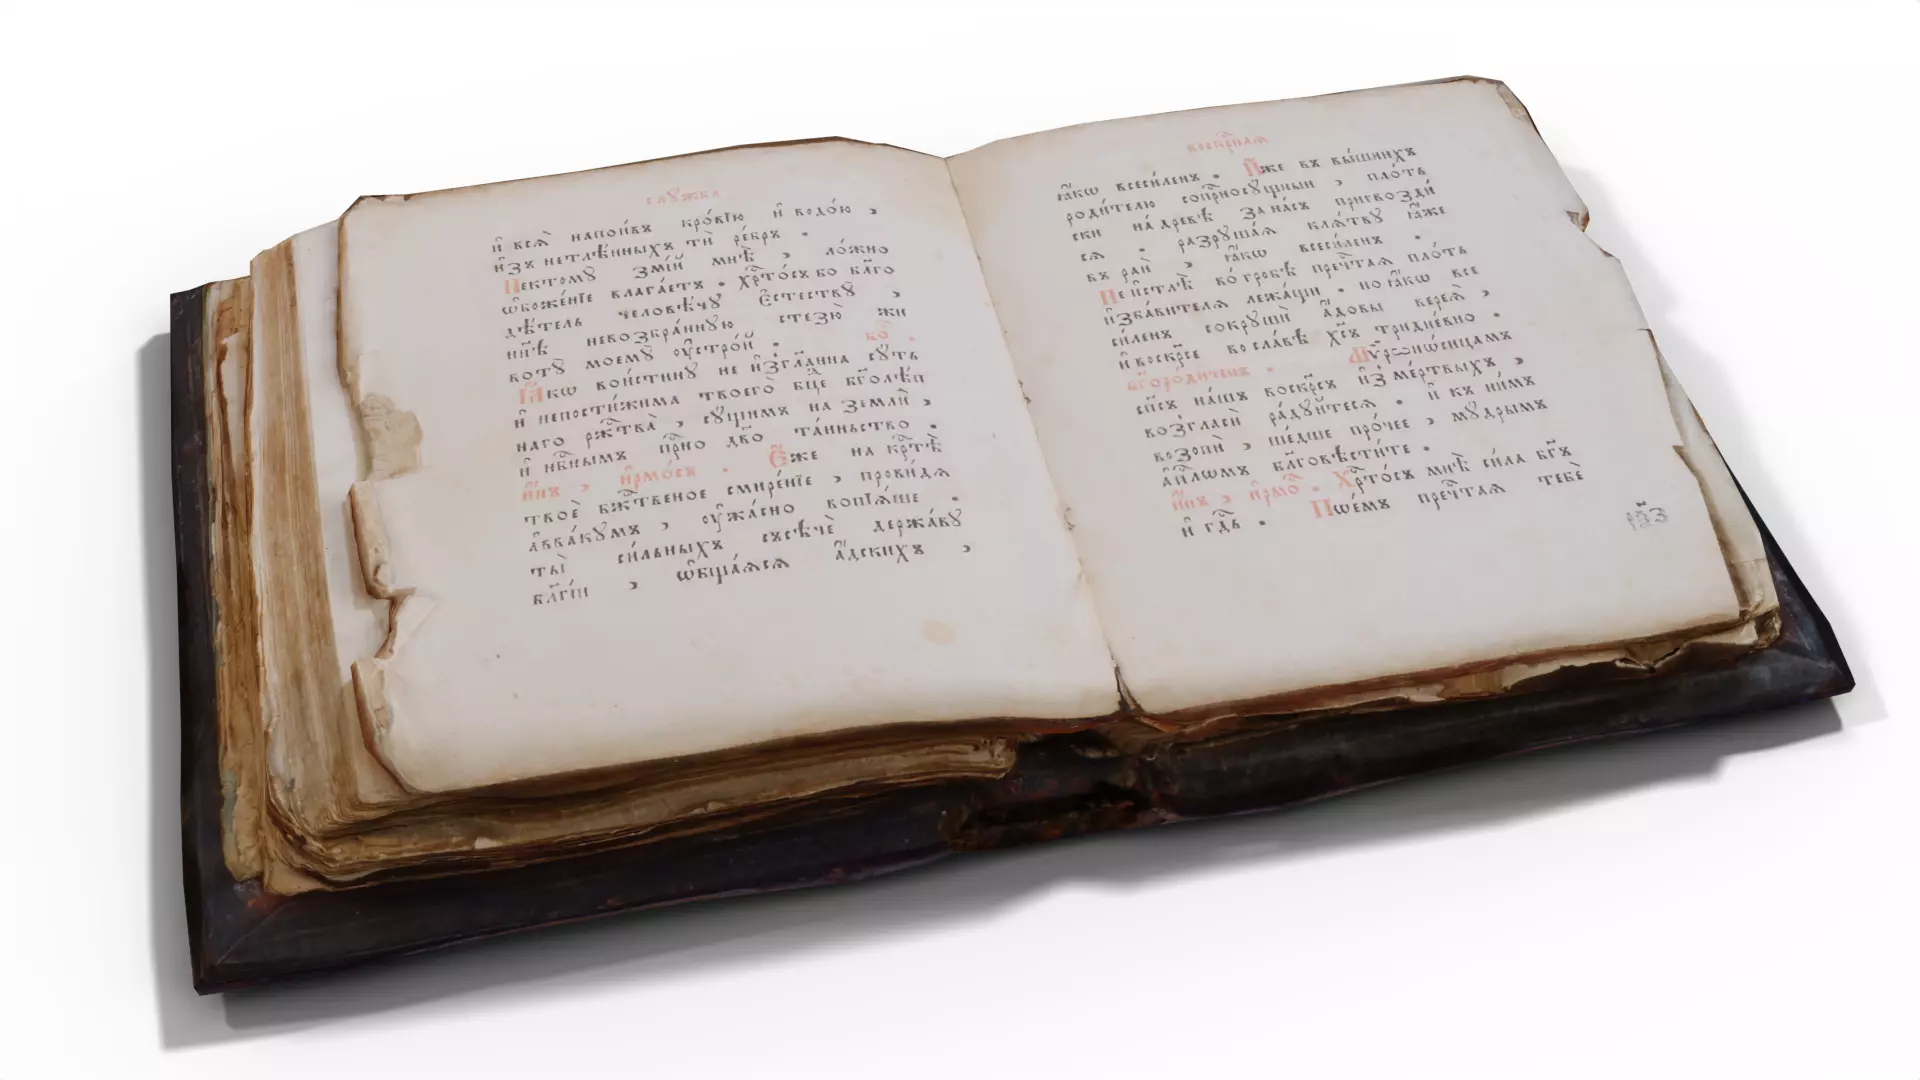 слꙋ́жба
и҆ всѧ̀ напои́въ кро́вїю и҆ водо́ю ,
и҆зъ нетлѣ́нныхъ тѝ ре́бръ .
Пектомꙋ̀ змі́й мнѣ̀ , ло́жно
ѡ҆боже́нїе влага́етъ . Хрⷭ҇то́съ бо благо
дѣ́тель человѣ́чꙋ є҆стествꙋ̀ ,
нн҃ѣ невозбра́ннꙋю стезю̀ жи
вотꙋ̀ моемꙋ̀ ᲂу҆стро́й . бо҃ .
Ꙗ҆́кѡ вои́стинꙋ не и҆зг҃ланна сꙋ́ть
и҆ непости́жима твоего̀ бц҃е бг҃олѣ́п
наго рж҃тва̀ , сꙋ́щимъ на землѝ ,
и҆ нбⷭ҇нымъ прⷭ҇но дв҃о та́иньство .
и҆́нъ , і҆рмо́съ . Є҆́же на крⷭ҇тѣ̀
твоѐ бж҃твеное смире́нїе , прови́дѧ
а҆ввакꙋ́мъ , ᲂу҆жа́сно вопїѧ́ше .
ты̀ си́льныхъ съсѣчѐ держа́вꙋ
бл҃гі́и , ѡ҆бща́ѧсѧ а҆́дскихъ ,
воскрⷭ҇наѧ
ꙗ҆́кѡ всеси́ленъ . И҆́же въ вы́шнихъ
роди́телю сопрⷭ҇носꙋ́щныи , пло́ть
ски на́древѣ за на́съ пригвозди́
сѧ . разрꙋша́ѧ клѧ́твꙋ ꙗ҆́же
въ раѝ , ꙗ҆́кѡ всеси́ленъ .
Не и҆стлѣ̀ во́гробѣ прⷱ҇таѧ пло́ть
и҆зба́вителѧ лежа́щи . но ꙗ҆́кѡ все
си́ленъ сокрꙋшѝ а҆́довы вереѧ̀ ,
и҆ воскрⷭ҇се во сла́вѣ хс҃ъ тридне́вно .
бг҃оро́диченъ . Мѵ́роно́сицамъ
сп҃съ на́шъ воскрⷭ҇съ и҆з̾ ме́ртвыхъ ,
возгласѝ ра́дꙋйтесѧ . и҆ къ ни́мъ
возопѝ , ше́дше про́чее , мꙋ́дрымъ
а҆пⷭ҇ломъ бл҃говѣсти́те .
и҆́нъ , і҆рмо́ . Хрⷭ҇то́съ мнѣ̀ си́ла бг҃ъ
и҆ гдⷭ҇ь . Пое́мъ прⷱ҇таѧ тебѐ